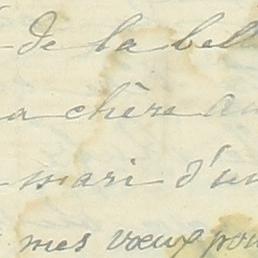 de la bell
a chère am
mari d'un
mes vœux pour